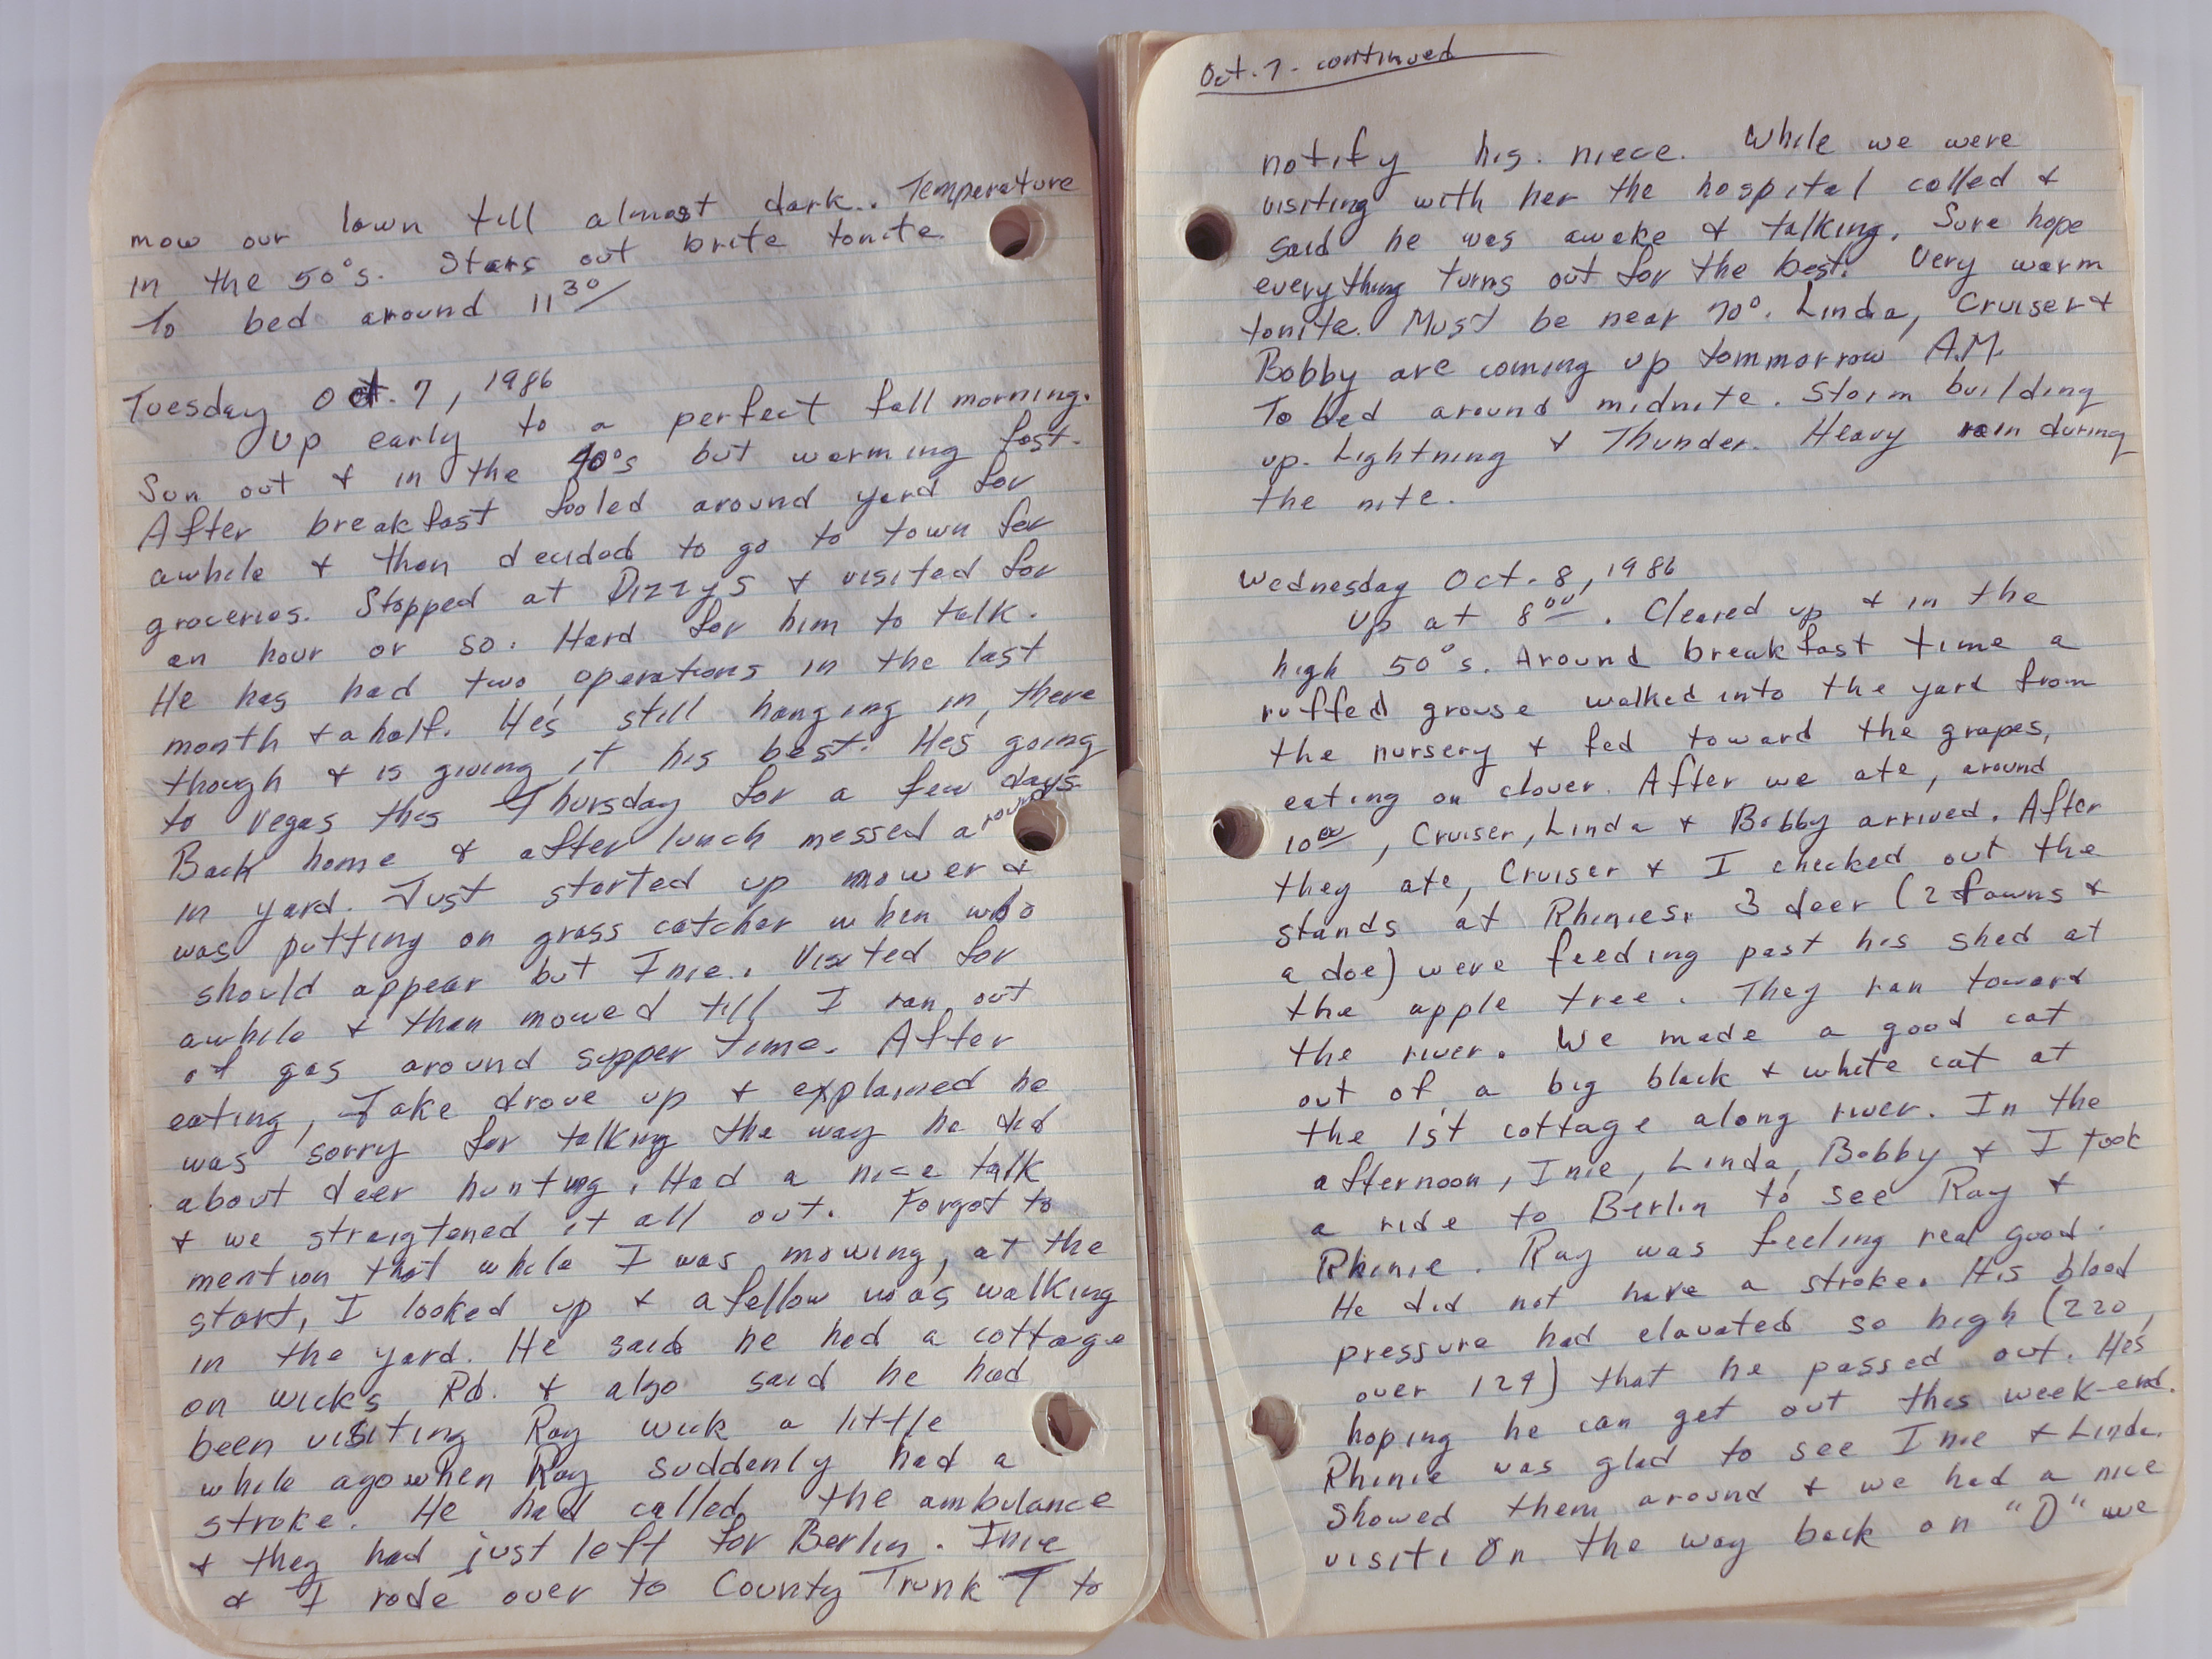 mow our lawn till almost dark.. Temperature
in the 50°s. Stars out brite tonite
To bed around 11 30/
Tuesday Oct. 7, 1986
Up early to a perfect fall morning.
Sun out & in the 40°s but warming fast.
After breakfast fooled around yard for
awhile & then decided to go to town for
groceries. Stopped at Dizzys & visited for
an hour or so. Hard for him to talk.
He has had two operations in the last
month & a half. He's still hanging in, there
though & is giving it his best. He's going
to Vegas this Thursday for a few days.
Back home & after lunch messed around
in yard. Just started up mower &
was putting on grass catcher when who
should appear but Inie. Visited for
awhile & then mowed till I ran out
of gas around supper time. After
eating, Jake drove up & explained he
was sorry for talking the way he did
about deer hunting. Had a nice talk
& we streigtened it all out. Forgot to
mention that while I was mowing, at the
start, I looked up & a fellow was walking
in the yard. He said he had a cottage
on wicks Rd. & also said he had
been visiting Ray wick a little
while ago when Ray suddenly had a
stroke. He had called the ambulance
& they had just left for Berlin. Inie
& I rode over to County Trunk T to
Oct. 7 - continued
notify his niece. While we were
visiting with her the hospital called &
said he was awake & talking. Sure hope
everything turns out for the best. Very warm
tonite. Must be near 70°. Linda, Cruiser &
Bobby are coming up tommorrow A.M.
To bed around midnite. Storm building
up. Lightning & Thunder. Heavy rain during
the nite.
Wednesday Oct. 8, 1986
Up at 8 00. Cleared up & in the
high 50°s. Around breakfast time a
ruffed grouse walked into the yard from
the nursery & fed toward the grapes,
eating on clover. After we ate, around
10 00, Cruiser, Linda & Bobby arrived. After
they ate, Cruiser & I checked out the
stands at Rhinies. 3 deer (2 fawns &
a doe) were feeding past his shed at
the apple tree. They ran toward
the river. We made a good cat
out of a big black & white cat at
the 1st cottage along river. In the
afternoon, Inie, Linda, Bobby & I took
a ride to Berlin to see Ray &
Rhinie. Ray was feeling real good.
He did not have a stroke. His blood
pressure had elavated so high (220
over 124) that he passed out. He's
hoping he can get out this week-end.
Rhinie was glad to see Inie & Linda.
Showed them around & we had a nice
visit. On the way back on "D" we